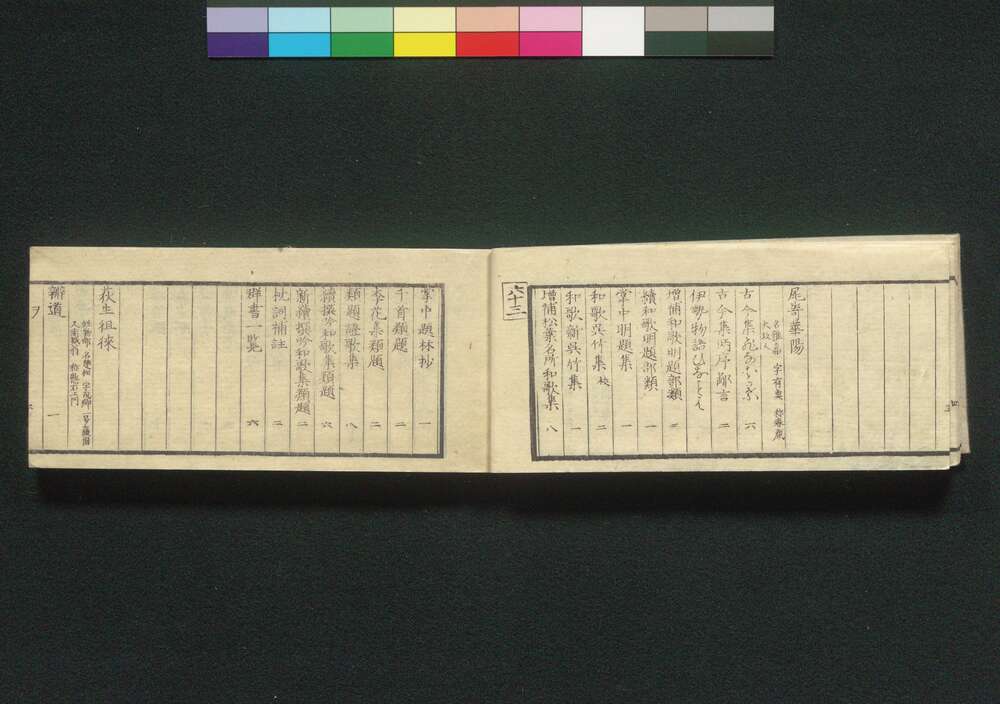 尾嵜華陽
名雅嘉 字有魚 称春蔵
大坂人
古今集 六
古今集両序鄙言 二
伊勢物語ひなことば 一
増補和歌明題部類 二
続和歌明題部類 一
掌中明題集 一
和歌呉竹集 校 二
和歌新呉竹集 一
増補松葉名所和歌集 八
六十三
掌中題林抄 一
千首類題 二
李花集類題 二
類題證歌集 八
續撰吟和歌集類題 六
新續撰吟和歌集類題 二
枕詞補註 二
群書一覧 六
荻生徂徠
姓物部 名雙松 字茂卿 一号蘐園
辨道 一
ヲ